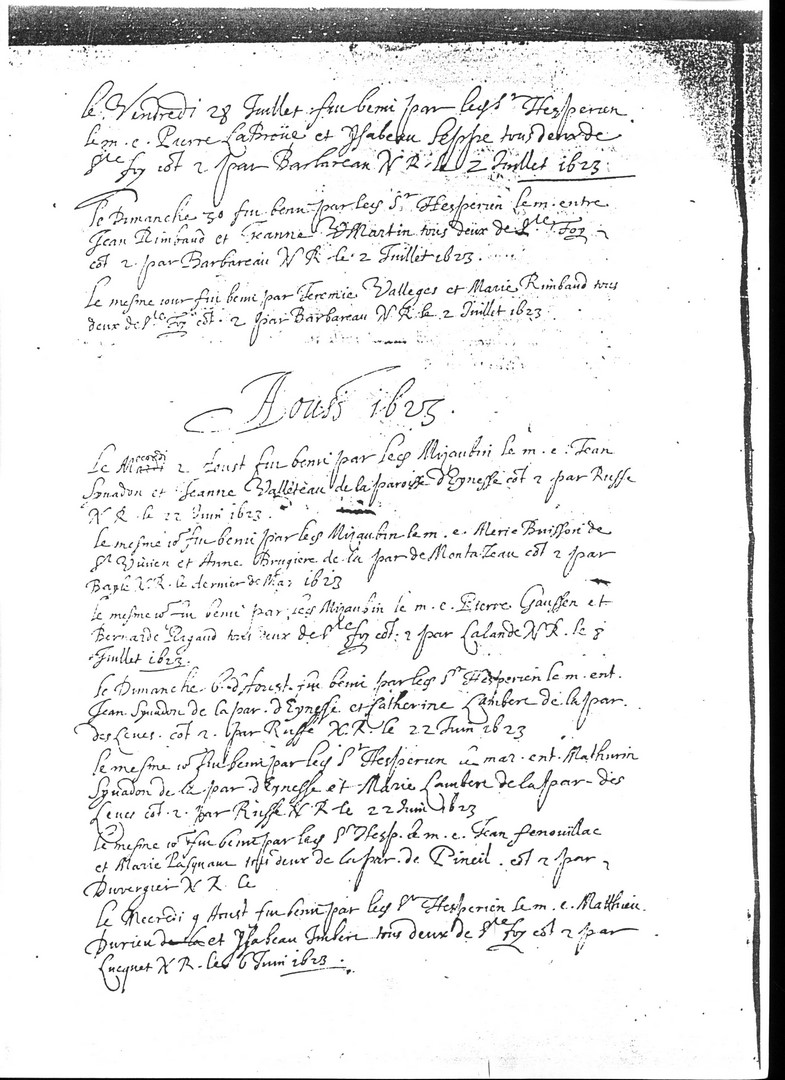 le Vendredi 28 Juillet fut beni par led Sr Hesperien
le m. e. Pierre LaBroüe et Ysabeau Seppe tous deux de
Ste foy cot 2 par Barbareau N R. le 2 Juillet 1623
Le Dimanche 30 fut beni par led Sr Hesperien le m. entre
Jean Rimbaud et Jeanne Martin tous deux de Ste Foy
cot 2. par Barbareau N R. le 2 Juillet 1623.
Le mesme iour fut beni par Jeremie Valleges et Marie Rimbaud tous
deux de Ste Foy cot. 2 par Barbareau N R. le 2 Juillet 1623
Aoust 1623.
Le Mecredi 2 Aoust fut beni par led Mizaubin le m. e. Jean
Squadon et Jeanne Valleteau de la paroisse d'Eynesse cot 2 par Russe
N R. le 22 Juin 1623.
Le mesme io fut beni par led Mizaubin le m. e. Merie Buisson de
St Vivien et Anne Brugiere de la par de Montazeau cot 2 par
N R. le dernier de Mai 1623
le mesme io fut beni par led Mizaubin le m. e. Pierre Gaussen et
Bernarde Rigaud tous deux de Ste foy cot. 2 par Lalande N R. le 8
Juillet 1623.
Le Dimanche 6 d'Aoust. fut beni par led Sr Hesperien le m. ent.
Jean Squadon de la par. d'Eynesse et Catherine Lambert de la par.
des Leves. cot 2. par Russe N. R. le 22 Juin 1623
Le mesme io fut beni par led Sr Hesperien le mar. ent. Mathurin
Squadon de la par. d'Eynesse et Marie Lambert de la par. des
Leves cot. 2. par Russe N R le 22 Juin 1623
Le mesme io fut beni par led Sr Hesp. le m. e. Jean fenouillac
et Marie Pasquau tous deux de la par. de Pineil. cot 2 par
Duvergier N R. le
Le Mecredi 9 Aoust fut beni par led Sr Hesperien le m. e. Matthieu
Durieu de la et Ysabeau Imbert tous deux de Ste foy cot 2 par
Lucquet N R. le 6 Juin 1623.